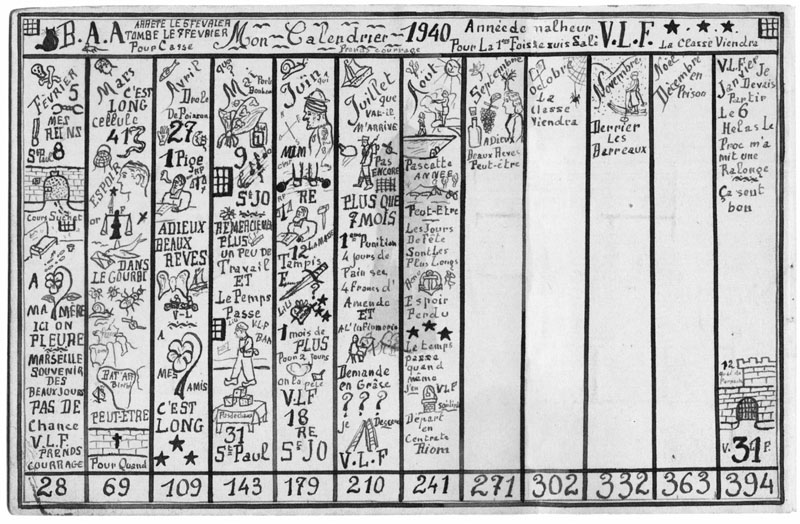 B.A.A
ARRÊTÉ LE 5 FEVRIER
TOMBE LE 8 FEVRIER
Pour Casse
Mon-Calendrier-1940
Prends courrage
Année de malheur
Pour La 1re Fois je suis Salé
V.L.F.
La Classe Viendra
FÉVRIER
5
MES
REINS
St Paul 8
Cours Suchet
A
MA MÈRE
ICI ON
PLEURE
MARSEILLE
SOUVENIR
DES
BEAUX JOURS
PAS DE
Chance
V.L.F.
PRENDS
COURRAGE
28
Mars
C'EST
LONG
Cellule
41
ESPOIR
or
DANS
LE GOURBI
BAT'AF
PEUT-ETRE
Pour Quand
69
Avril
Drole
De Poisson
27
1 Pige
ADIEUX
BEAUX
REVES
V-L
A
MES AMIS
C'EST
LONG
109
Mai
Porte
Bonheur
9
St JO
REMERCIEMENT
PLUS
un PEU DE
Travail
ET
Le Temps
Passe
V.L.F
BAA
31
St Paul
143
Juin
qui
MLM
RE
1
12
Tempis
LiLi
1 mois de
PLUS
Pour 2 jours
on la pete
V.LF
18
RE
St JO
179
Juillet
que
VAL-IL
M'ARRIVÉ
Pas
ENCORE
PLUS QUE
7 MOIS
1ere Punition
4 jours de
Pain sec
4 Francs d'
Amende
ET
A L'Infirmerie
Demande
en Grâce
? ? ?
je Descend
V.L.F
210
Aout
Pas cette
ANNEE
Peut-Etre
Les Jours
De fête
Sont Les
Plus Longs
Espoir
Perdu
Le temps
passe
quand
même
V.L.F
Départ
en
Centrale
Riom
241
Septembre
ADIEUX
Beaux Reves
Peut-être
271
Octobre
La
Classe
Viendra
302
Novembre
Derrier
Les
Barreaux
332
Noel
Décembre
en
Prison
363
V.L.F. et Je
Jan Devais
Partir
Le 6
Helas Le
Proc m'a
mit une
Ralonge
Ça sent
bon
12
V. 31 F.
394